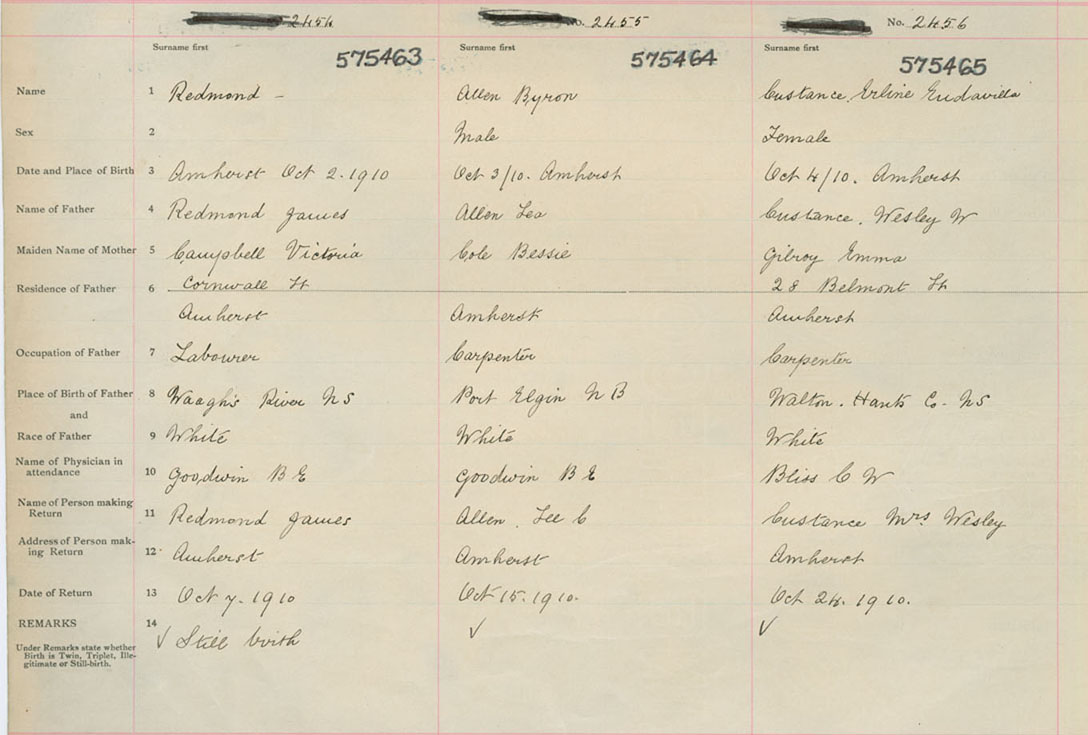 2454 No. 2455 No. 2456
Surname first Surname first Surname first
575463 575464 575465
Name 1 Redmond — Allen Byron Custance, Erline Eudavilla
Sex 2 Male Female
Date and Place of Birth 3 Amherst Oct 2. 1910 Oct 3/10. Amherst Oct 4/10. Amherst
Name of Father 4 Redmond James Allen Lea Custance, Wesley W
Maiden Name of Mother 5 Campbell Victoria Cole Bessie Gilroy Emma
Residence of Father 6 Cornwall St 28 Belmont St
Amherst Amherst Amherst
Occupation of Father 7 Labourer Carpenter Carpenter
Place of Birth of Father 8 Waagh's River N S Port Elgin N B Walton. Hants Co. N S
and
Race of Father 9 White White White
Name of Physician in
attendance 10 Goodwin B E Goodwin B E Bliss C W
Name of Person making
Return 11 Redmond James Allen, Lee C Custance Mrs Wesley
Address of Person mak-
ing Return 12 Amherst Amherst Amherst
Date of Return 13 Oct 7. 1910 Oct 15. 1910. Oct 24. 1910.
REMARKS 14 √ Still birth √ √
Under Remarks state whether
Birth is Twin, Triplet, Ille-
gitimate or Still-birth.